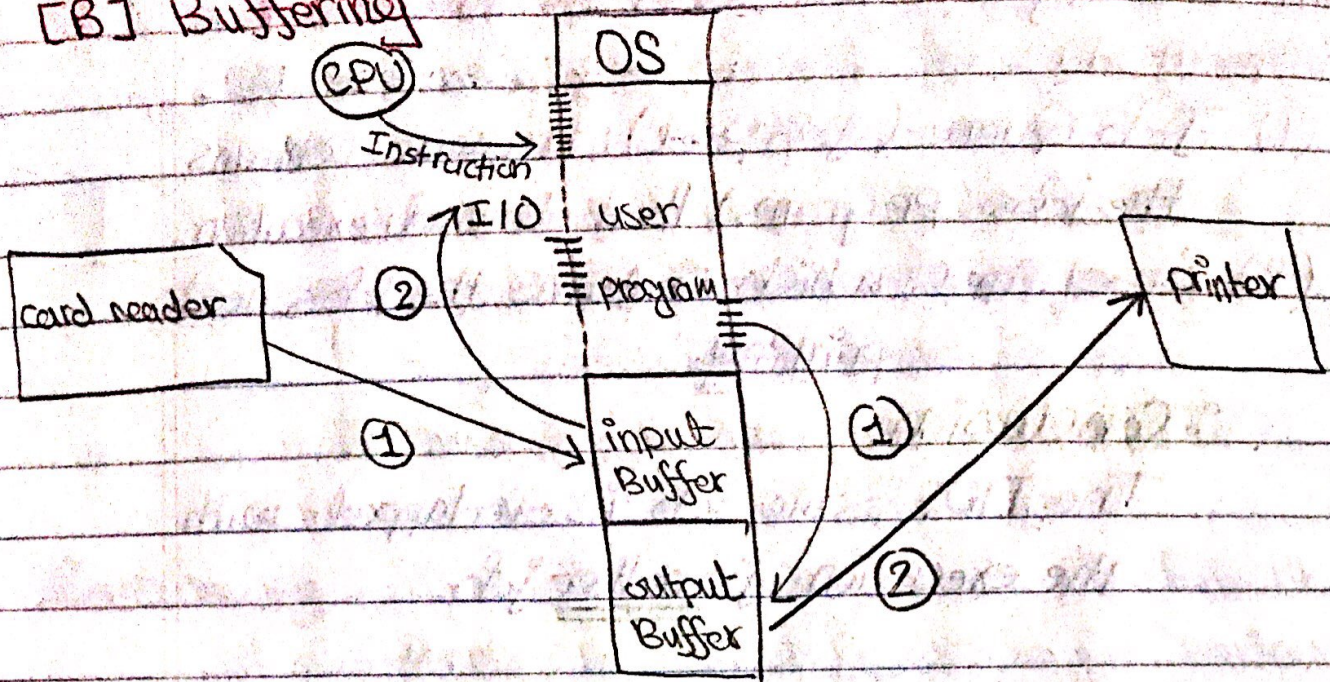 [B] Buffering
CPU
OS
Instruction
I/O
user
program
card reader
②
printer
①
input
Buffer
①
output
Buffer
②